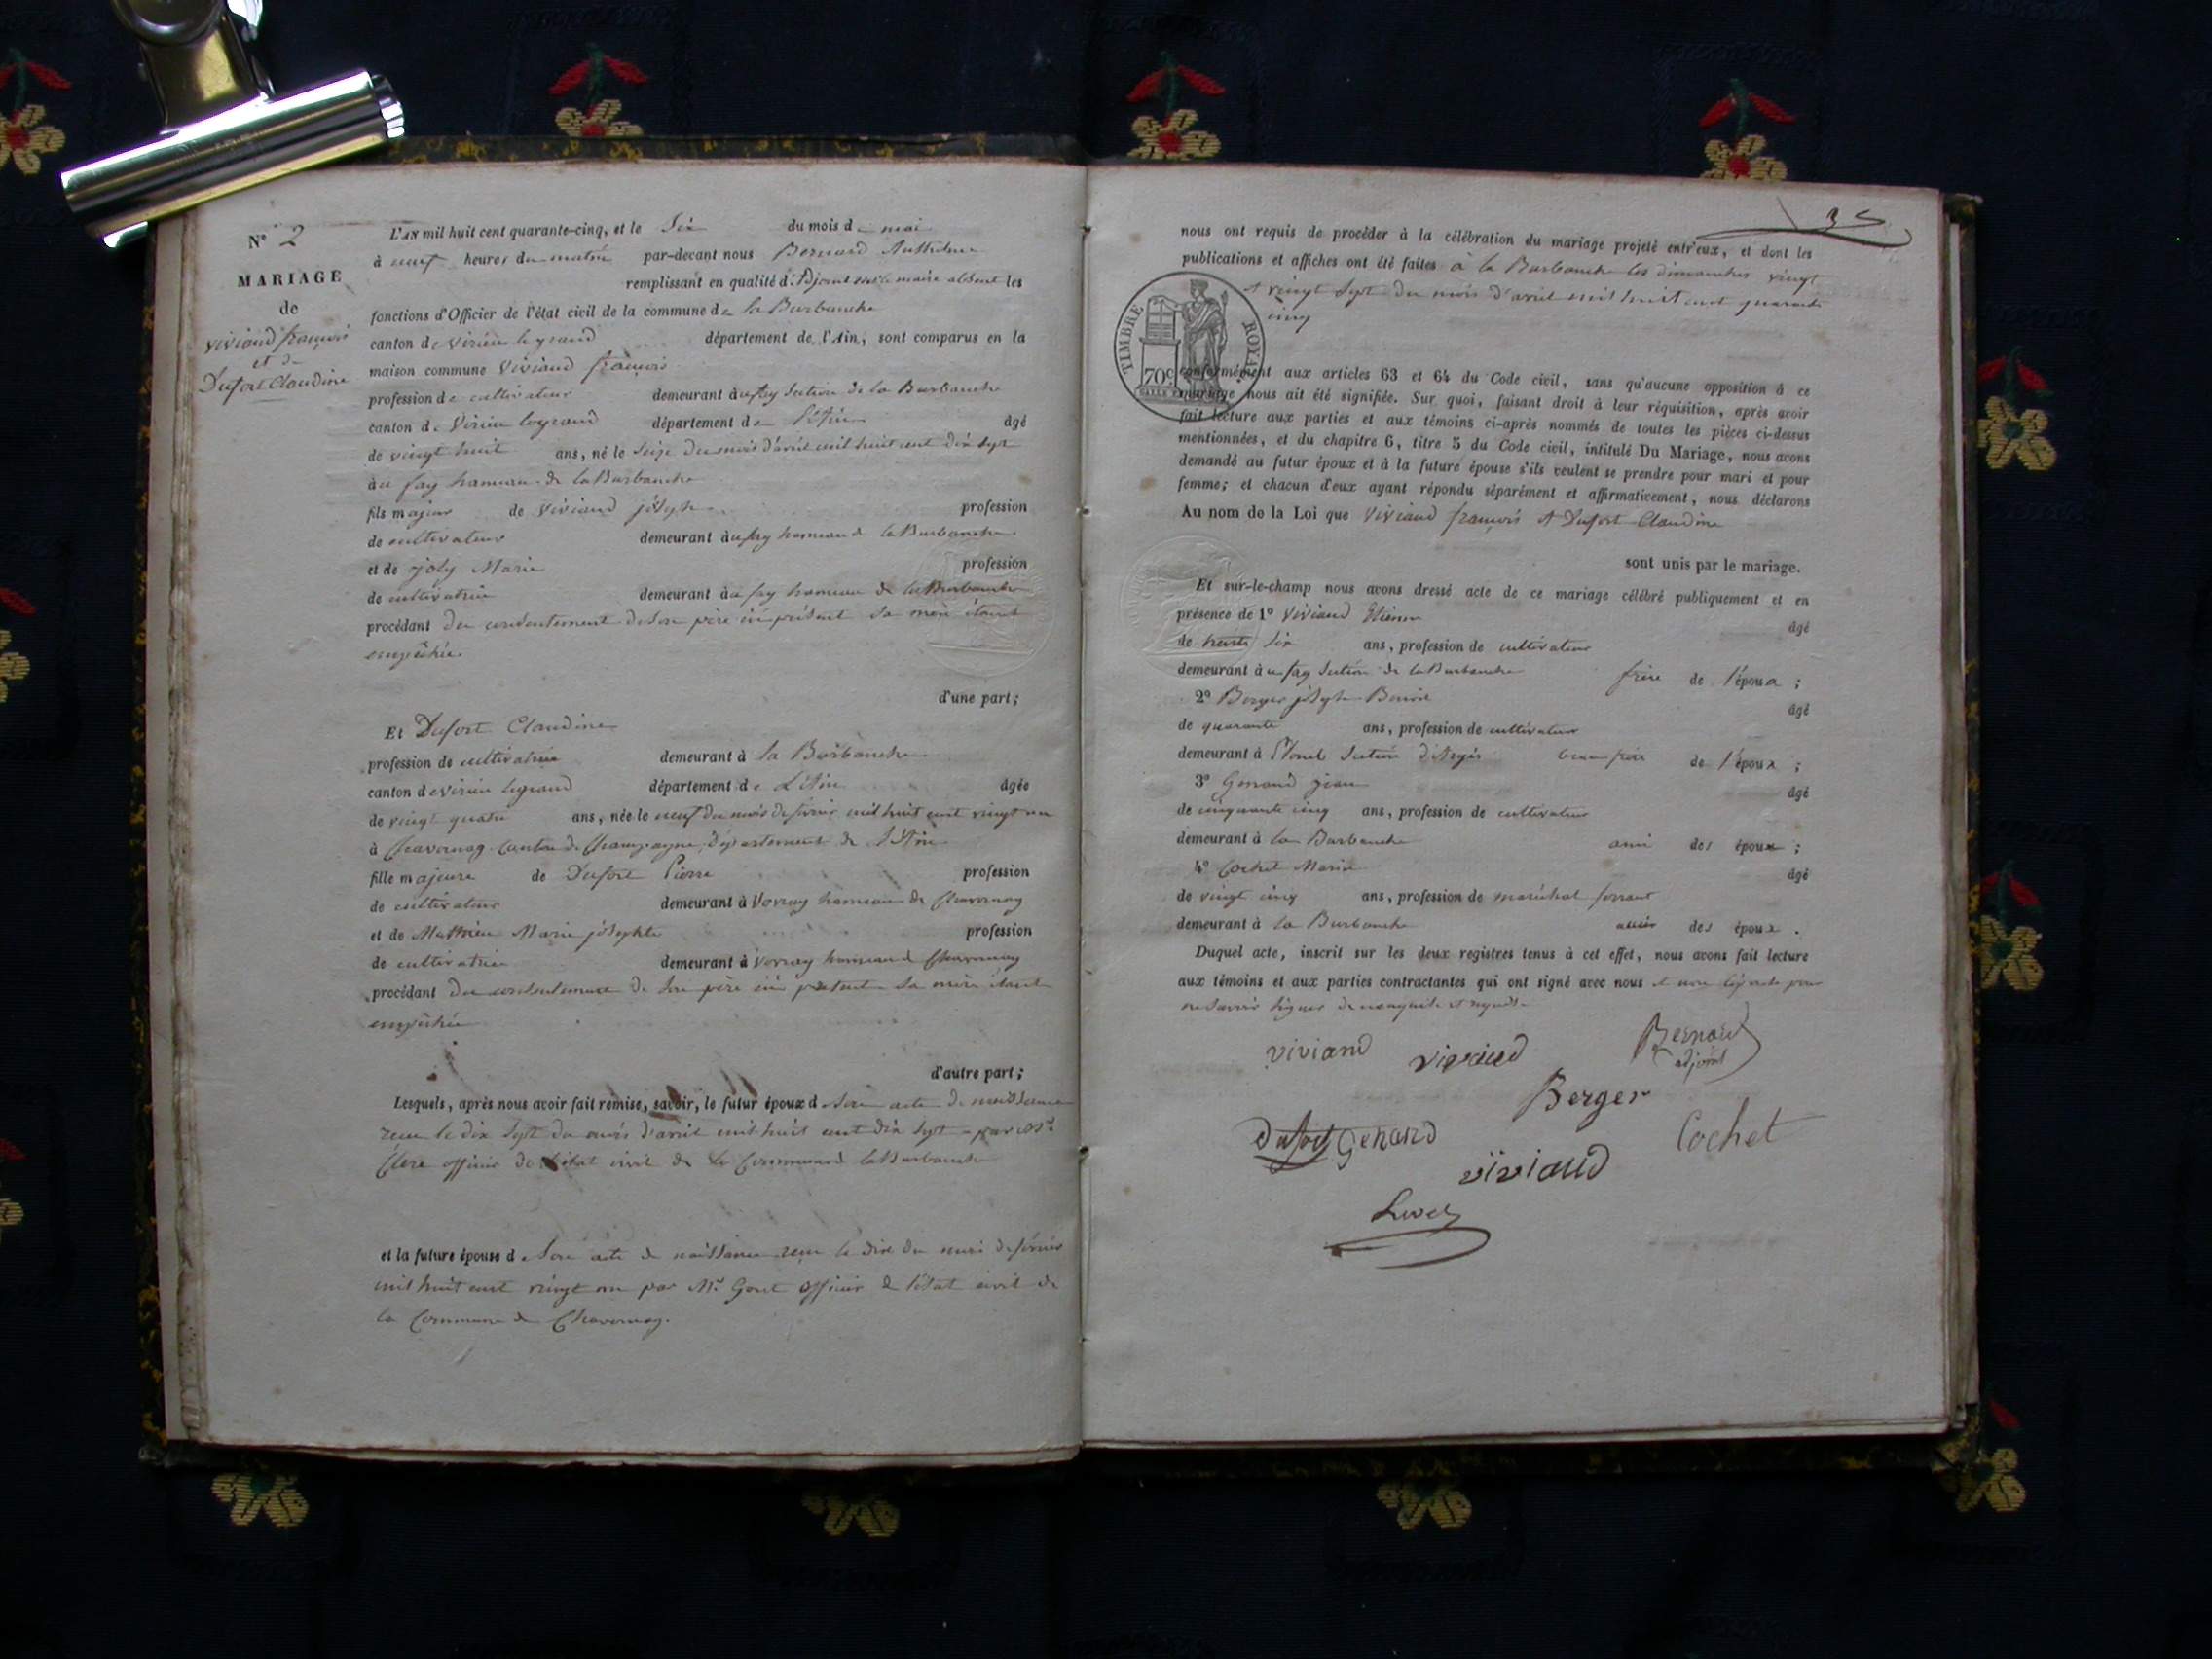 N° 2
MARIAGE
de
Viviand françois
et de
Dufort Claudine
L'AN mil huit cent quarante-cinq, et le Six du mois de mai
à neuf heures du matin par-devant nous Bernard Anthelme
remplissant en qualité d'Adjoint le maire absent les
fonctions d'Officier de l'état civil de la commune de la Burbanche
canton de Virieu le grand département de l'Ain, sont comparus en la
maison commune Viviand françois
profession de cultivateur demeurant au fay Section de la Burbanche
canton de Virieu legrand département de l'Ain âgé
de vingt huit ans, né le Seize du mois d'avril mil huit cent dix Sept
au fay hameau de la Burbanche
fils majeur de Viviand joseph profession
de cultivateur demeurant au fay hameau de la Burbanche
et de joly Marie profession
de cultivatrice demeurant au fay hameau de la Burbanche
procédant du consentement de Son père ici présent Sa mère étant
empêchée
d'une part;
Et Dufort Claudine
profession de cultivatrice demeurant à la Burbanche
canton de virieu legrand département de L'Ain âgée
de vingt quatre ans, née le neuf du mois de fevrier mil huit cent vingt un
à Chavornay Canton de Champagne, département de l'Ain
fille majeure de Dufort Pierre profession
de cultivateur demeurant à Vovray hameau de Chavornay
et de Mathieu Marie joséphte profession
de cultivatrice demeurant à Vovray hameau de Chavornay
procédant du consentement de Son père ici présent Sa mère étant
empêchée
d'autre part;
Lesquels, après nous avoir fait remise, savoir, le futur époux de Son acte de naissance
reçu le dix Sept du mois d'avril mil huit cent dix Sept par Mr
Clerc officier de l'état civil de la Commune de la Burbanche
et la future épouse de Son acte de naissance reçu le dix du mois de fevrier
mil huit cent vingt un par Mr. officier de l'état civil de
la Commune de Chavornay.
3
nous ont requis de procéder à la célébration du mariage projeté entr'eux, et dont les
publications et affiches ont été faites à la Burbanche les dimanches vingt
et vingt Sept du mois d'avril mil huit cent quarante
cinq
TIMBRE ROYAL
70c
conformément aux articles 63 et 64 du Code civil, sans qu'aucune opposition à ce
mariage nous ait été signifiée. Sur quoi, faisant droit à leur réquisition, après avoir
fait lecture aux parties et aux témoins ci-après nommés de toutes les pièces ci-dessus
mentionnées, et du chapitre 6, titre 5 du Code civil, intitulé Du Mariage, nous avons
demandé au futur époux et à la future épouse s'ils veulent se prendre pour mari et pour
femme; et chacun d'eux ayant répondu séparément et affirmativement, nous déclarons
Au nom de la Loi que Viviand françois et Dufort Claudine
sont unis par le mariage.
Et sur-le-champ nous avons dressé acte de ce mariage célébré publiquement et en
présence de 1° Viviand Etienne âgé
de trente Six ans, profession de cultivateur
demeurant au fay Section de la Burbanche frère de l'époux ;
2° Berger joseph Benoit âgé
de quarante ans, profession de cultivateur
demeurant à Section d'Argis beau frère de l'époux ;
3° Genand jean âgé
de cinquante cinq ans, profession de cultivateur
demeurant à la Burbanche ami des époux ;
4° Cochet Marin âgé
de vingt cinq ans, profession de maréchal ferrant
demeurant à la Burbanche des époux .
Duquel acte, inscrit sur les deux registres tenus à cet effet, nous avons fait lecture
aux témoins et aux parties contractantes qui ont signé avec nous et non l'épouse pour
ne savoir Signer de ce enquise et requise
viviand viviand Bernard
adjoint
Berger
Dufort Genand Cochet
viviand